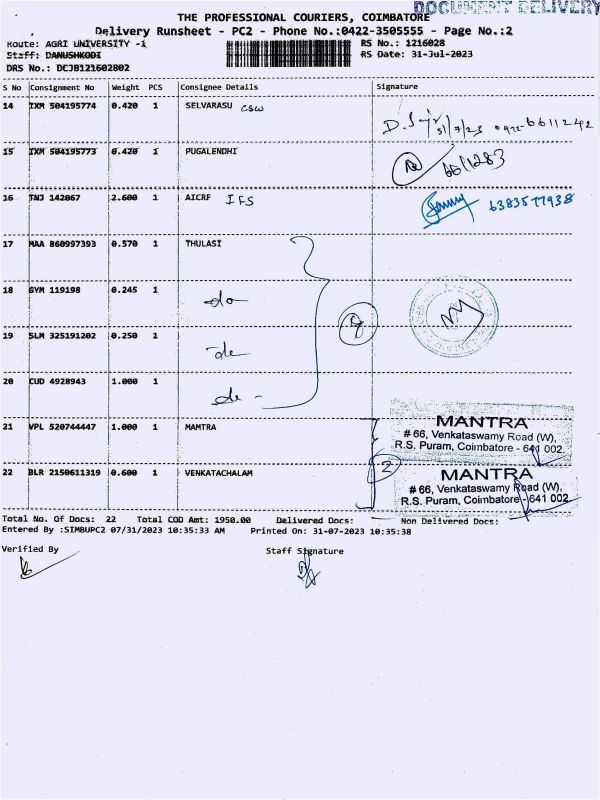 DOCUMENT DELIVERY
THE PROFESSIONAL COURIERS, COIMBATORE
Delivery Runsheet - PC2 - Phone No.:0422-3505555 - Page No.:2
Route: AGRI UNIVERSITY -1 RS No.: 1216028
Staff: DANUSHKODI RS Date: 31-Jul-2023
DRS No.: DCJB121602802
S No Consignment No Weight PCS Consignee Details Signature
14 IXM 504195774 0.420 1 SELVARASU CSW
31/7/23 0422-6611242
15 IXM 504195773 0.420 1 PUGALENDHI 6611283
16 TNJ 142067 2.600 1 AICRF IFS 6383577938
17 MAA 860997393 0.570 1 THULASI
18 GYM 119198 0.245 1 do
19 SLM 325191202 0.250 1 do
20 CUD 4928943 1.000 1 do -
21 VPL 520744447 1.000 1 MAMTRA
MANTRA
# 66, Venkataswamy Road (W),
R.S. Puram, Coimbatore - 641 002.
22 BLR 2150611319 0.600 1 VENKATACHALAM
2
MANTRA
# 66, Venkataswamy Road (W),
R.S. Puram, Coimbatore - 641 002.
Total No. Of Docs: 22 Total COD Amt: 1950.00 Delivered Docs: Non Delivered Docs:
Entered By :SIMBUPC2 07/31/2023 10:35:33 AM Printed On: 31-07-2023 10:35:38
Verified By Staff Signature